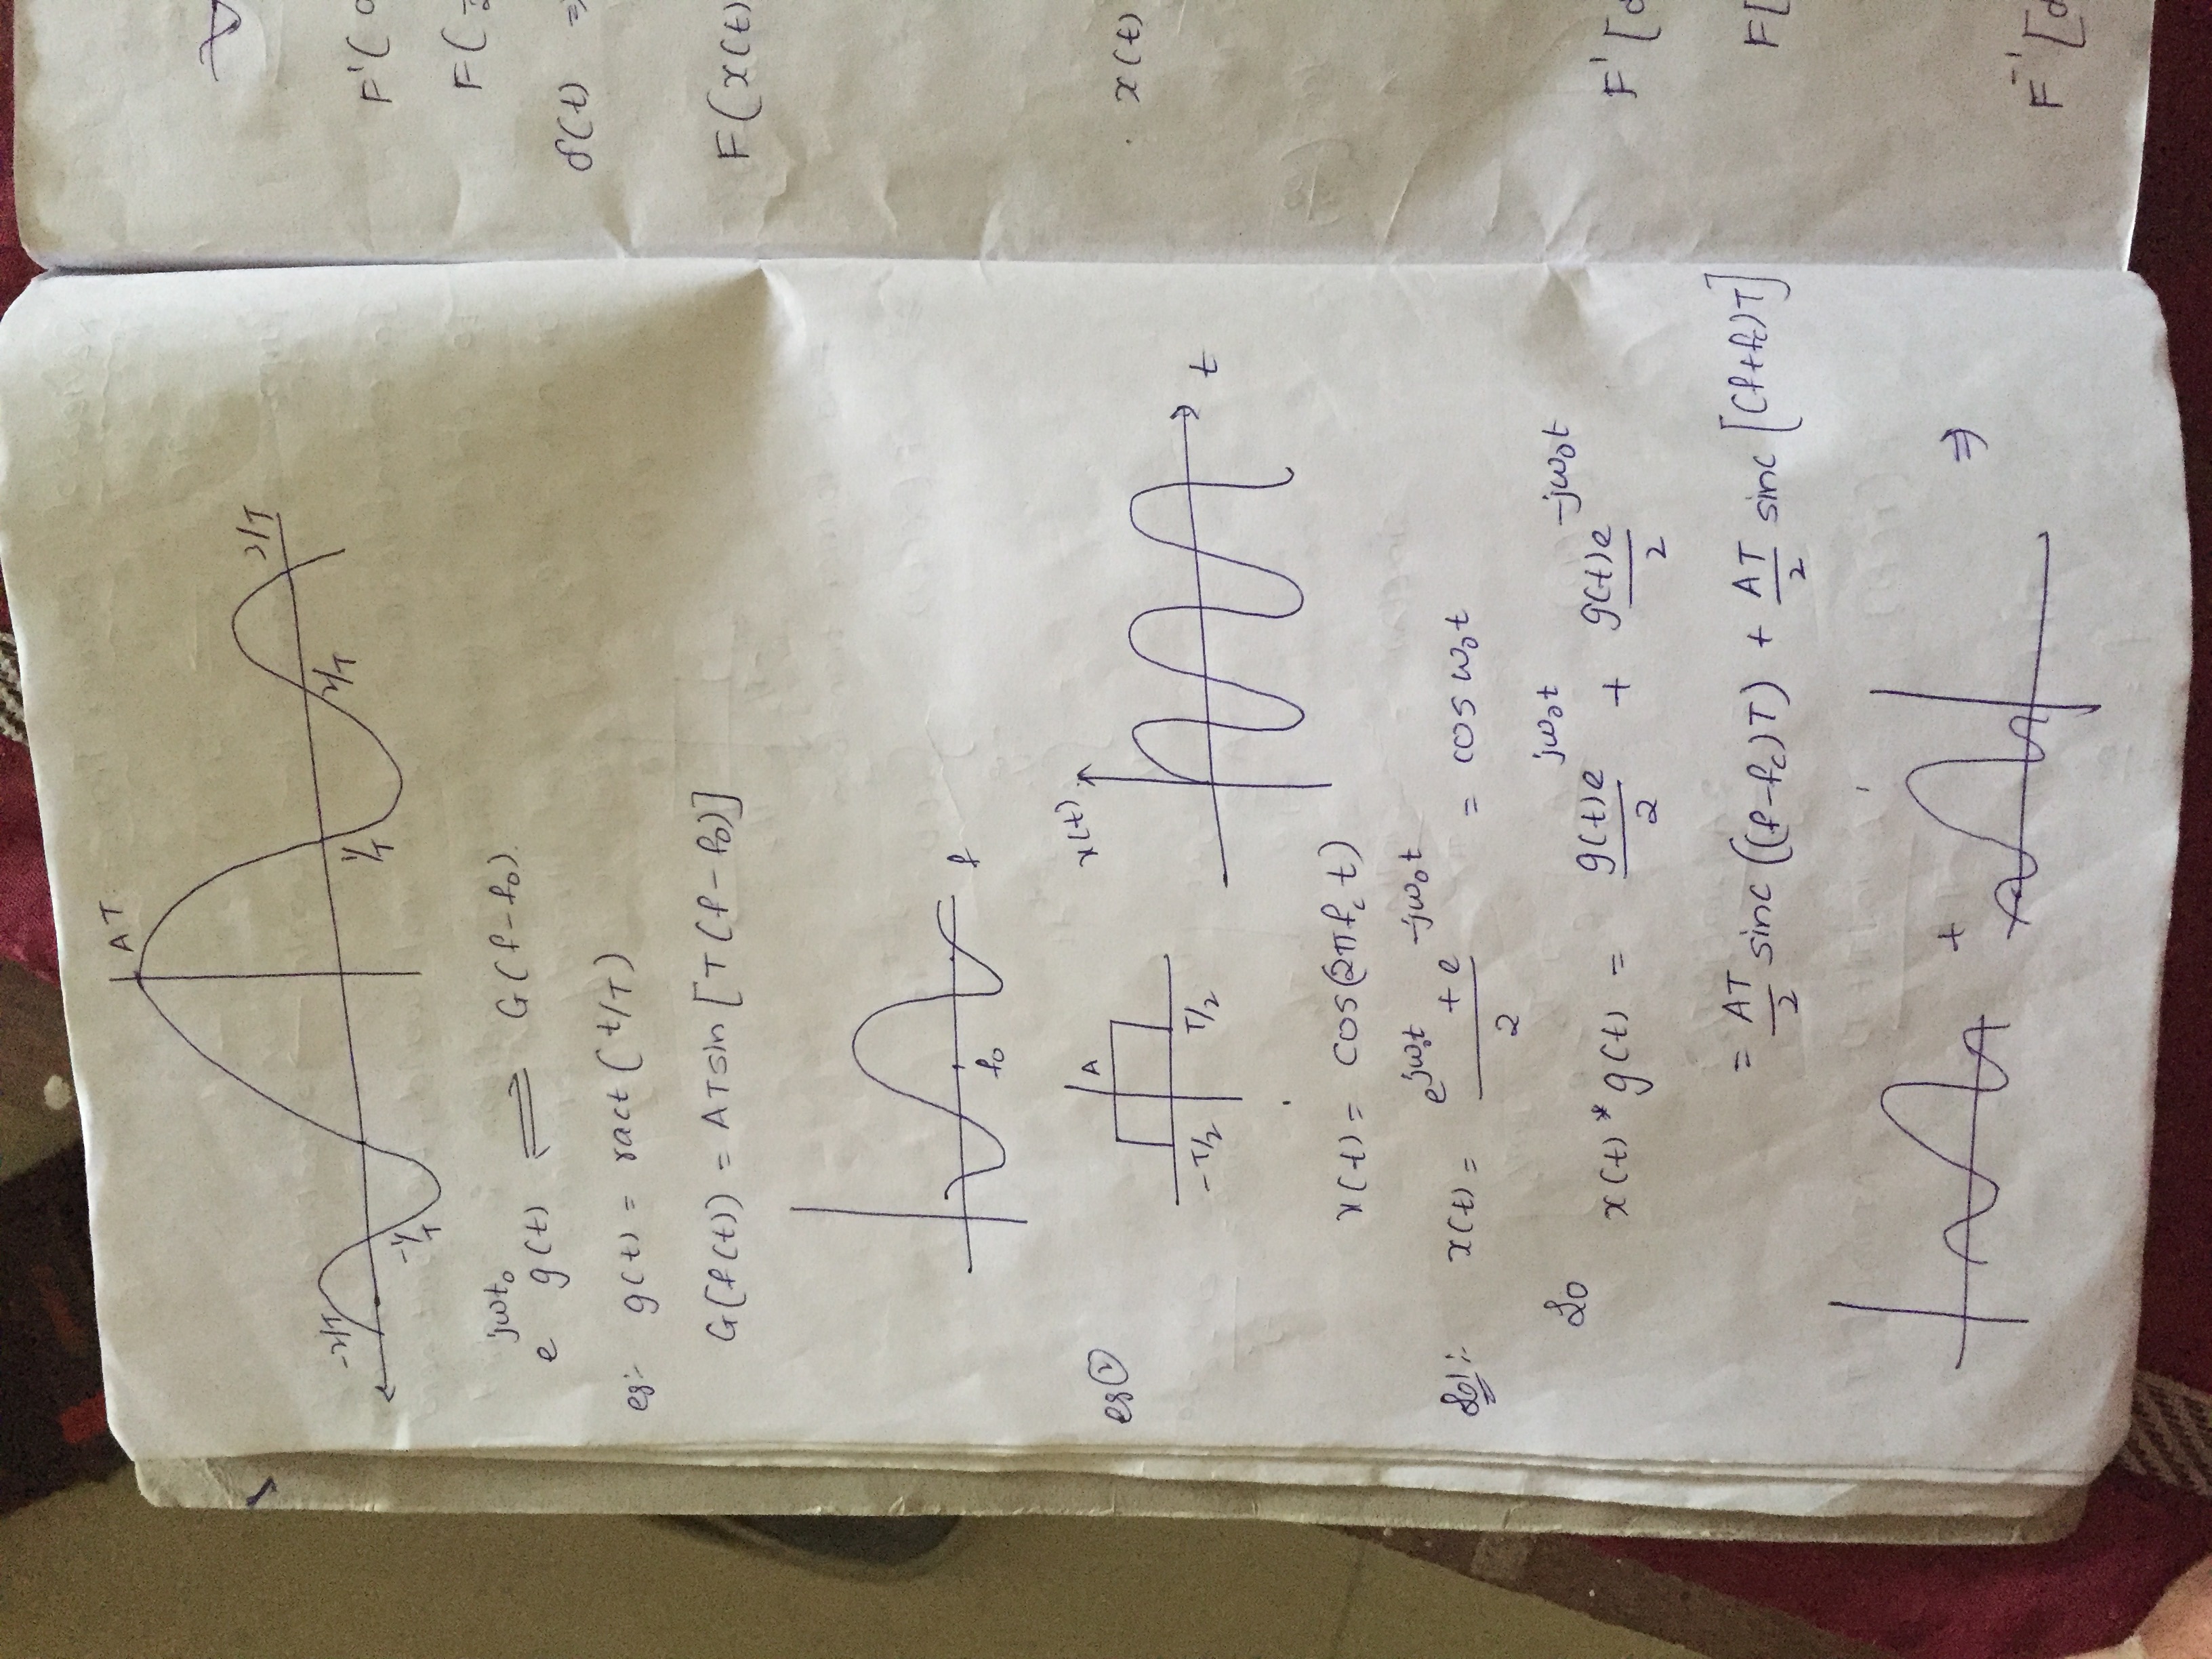 AT
-2/T
-1/T
1/T
2/T
3/T
e^{jωt₀} g(t) ⇌ G(f-f₀).
eg:- g(t) = ract (t/T)
G(f(t)) = ATsin [T(f-f₀)]
f₀
f
eg ②
A
-T/2
T/2
x(t)
t
x(t) = cos(2πf_c t)
Sol:- x(t) = (e^{jω₀t} + e^{-jω₀t})/2 = cos ω₀t
So
x(t) * g(t) = g(t)e^{jω₀t}/2 + g(t)e^{-jω₀t}/2
= AT/2 sinc ((f-f_c)T) + AT/2 sinc [(f+f_c)T]
+ ⇒
F'(
F(
δ(t) ⇒
F(x(t)
x(t)
F'[
F[
F^{-1}[